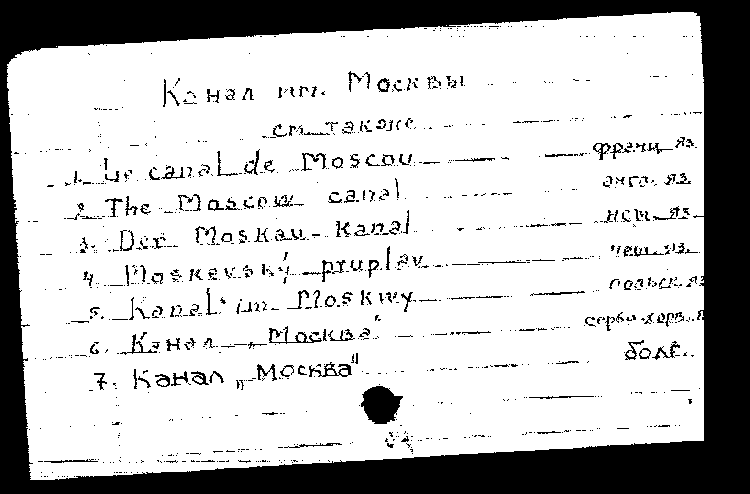 Канал им. Москвы
см. также
1. Le canal de Moscou франц. яз.
2. The Moscow canal англ. яз.
3. Der Moskau-Kanal нем. яз.
4. Moskevský pruplav чеш. яз.
5. Kanal im. Moskwy польск. яз
6. Канал „Москва" сербо-хорв. я
7. Канал „Москва" болг.